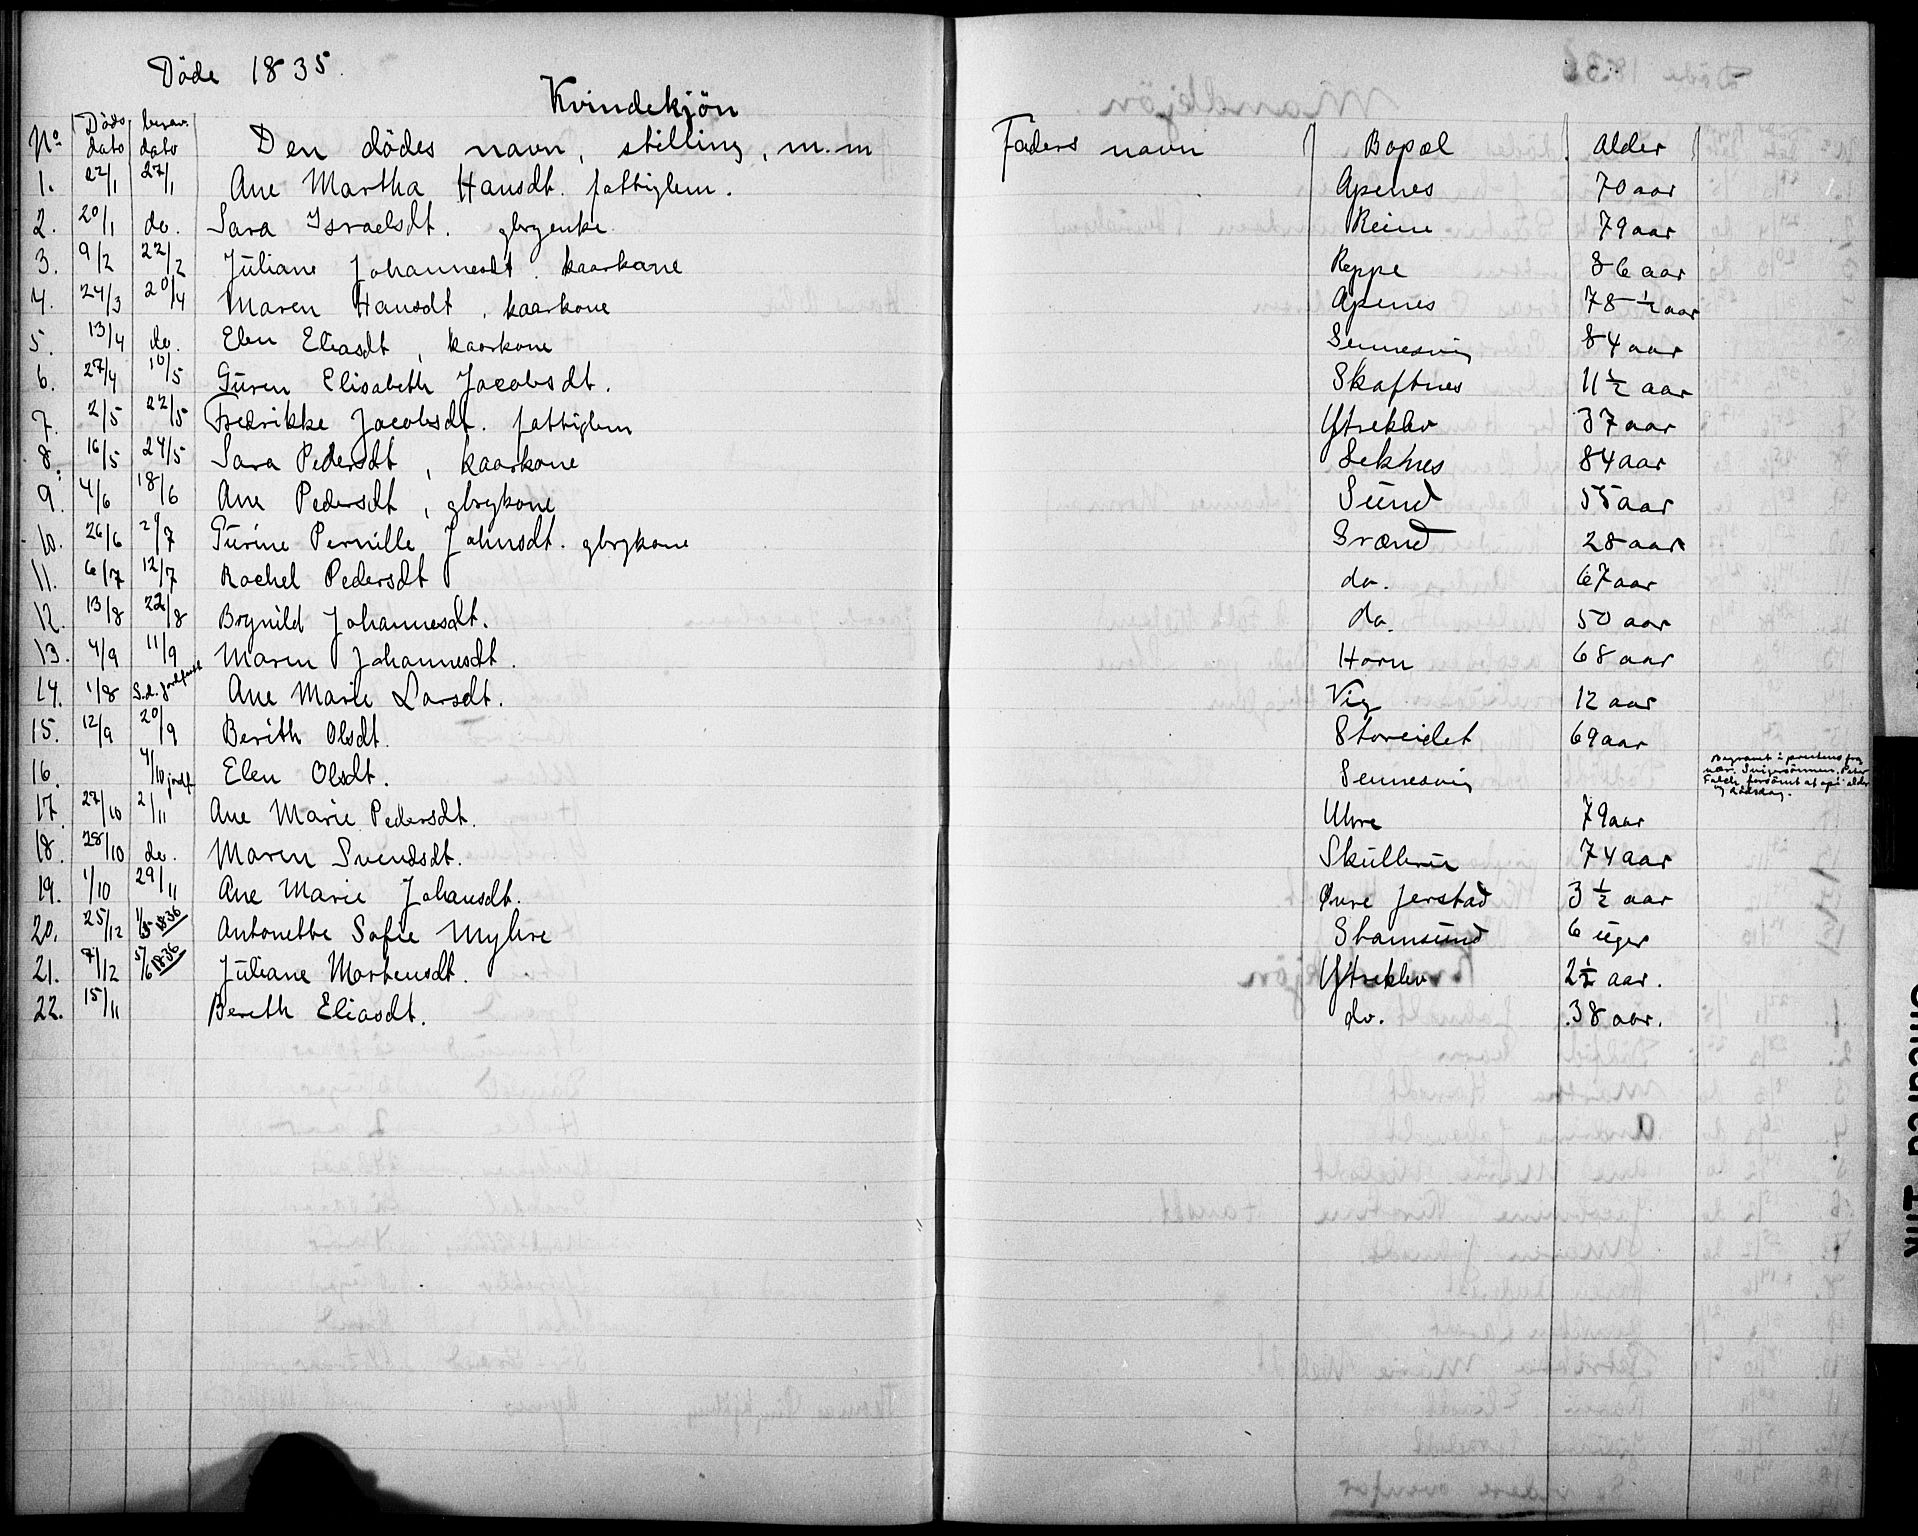 Döde 1835.
Kvindekjön
No | Döds dato | begrav. dato | Den dödes navn, stilling, m.m | Faders navn | Bopæl | Alder
1. 22/1 27/1 Ane Martha Hansdt. fattiglem. Apenes 70 aar
2. 20/1 do. Sara Israelsdt. gbrgenke Reine 79 aar
3. 9/2 22/2 Juliane Johannesdt. kaarkone Reppe 86 aar
4. 24/3 20/4 Maren Hansdt, kaarkone Apenes 78 1/2 aar
5. 13/4 do. Elen Eliasdt, kaarkone Sennesvig 84 aar
6. 27/4 10/5 Guren Elisabeth Jacobsdt. Skaftnes 11 1/2 aar
7. 2/5 22/5 Fredrikke Jacobsdt. fattiglem Ytreklev 37 aar
8. 16/5 24/5 Sara Pedersdt, kaarkone Leknes 84 aar
9. 4/6 18/6 Ane Pedersdt, gbrgkone Sund 55 aar
10. 26/6 29/7 Gurine Pernille Johnsdt. gbrgkone Grænd 28 aar
11. 6/7 12/7 Rachel Pedersdt do. 67 aar
12. 13/8 22/8 Brynild Johannesdt. do. 50 aar
13. 4/9 11/9 Maren Johannesdt. Horn 68 aar
14. 1/8 S.d. jordfæst Ane Marie Larsdt. Vig 12 aar
15. 12/9 20/9 Berith Olsdt. Storeidet 69 aar
16. 4/10 jordf. Elen Olsdt. Sennesvig Begravet i prestens fra
nær. Svigersönnen, Peter
Falch forsömt at opgi alder
og dödsdag.
17. 27/10 2/11 Ane Marie Pedersdt. Uhre 79 aar
18. 28/10 do. Maren Svendsdt. Skullbru 74 aar
19. 1/10 29/11 Ane Marie Johansdt. Övre Jerstad 3 1/2 aar
20. 25/12 1/5 1836 Antonette Sofie Myhre Stamsund 6 uger
21. 7/12 5/6 1836 Juliane Mortensdt. Ytreklev 2 1/2 aar.
22. 15/11 Berith Eliasdt. do. 38 aar.